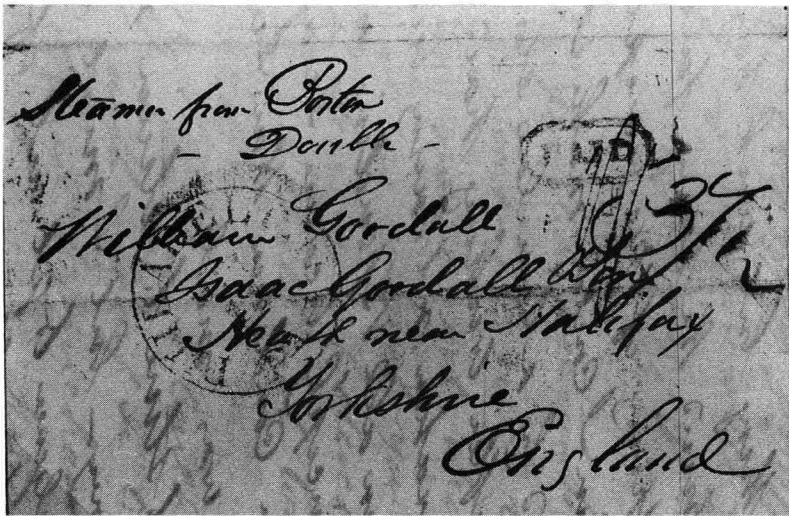 Steamer from Boston
- Double -
PAID
37½
William Gordall
Isaac Gordall
Heath near Halifax
Yorkshire
England